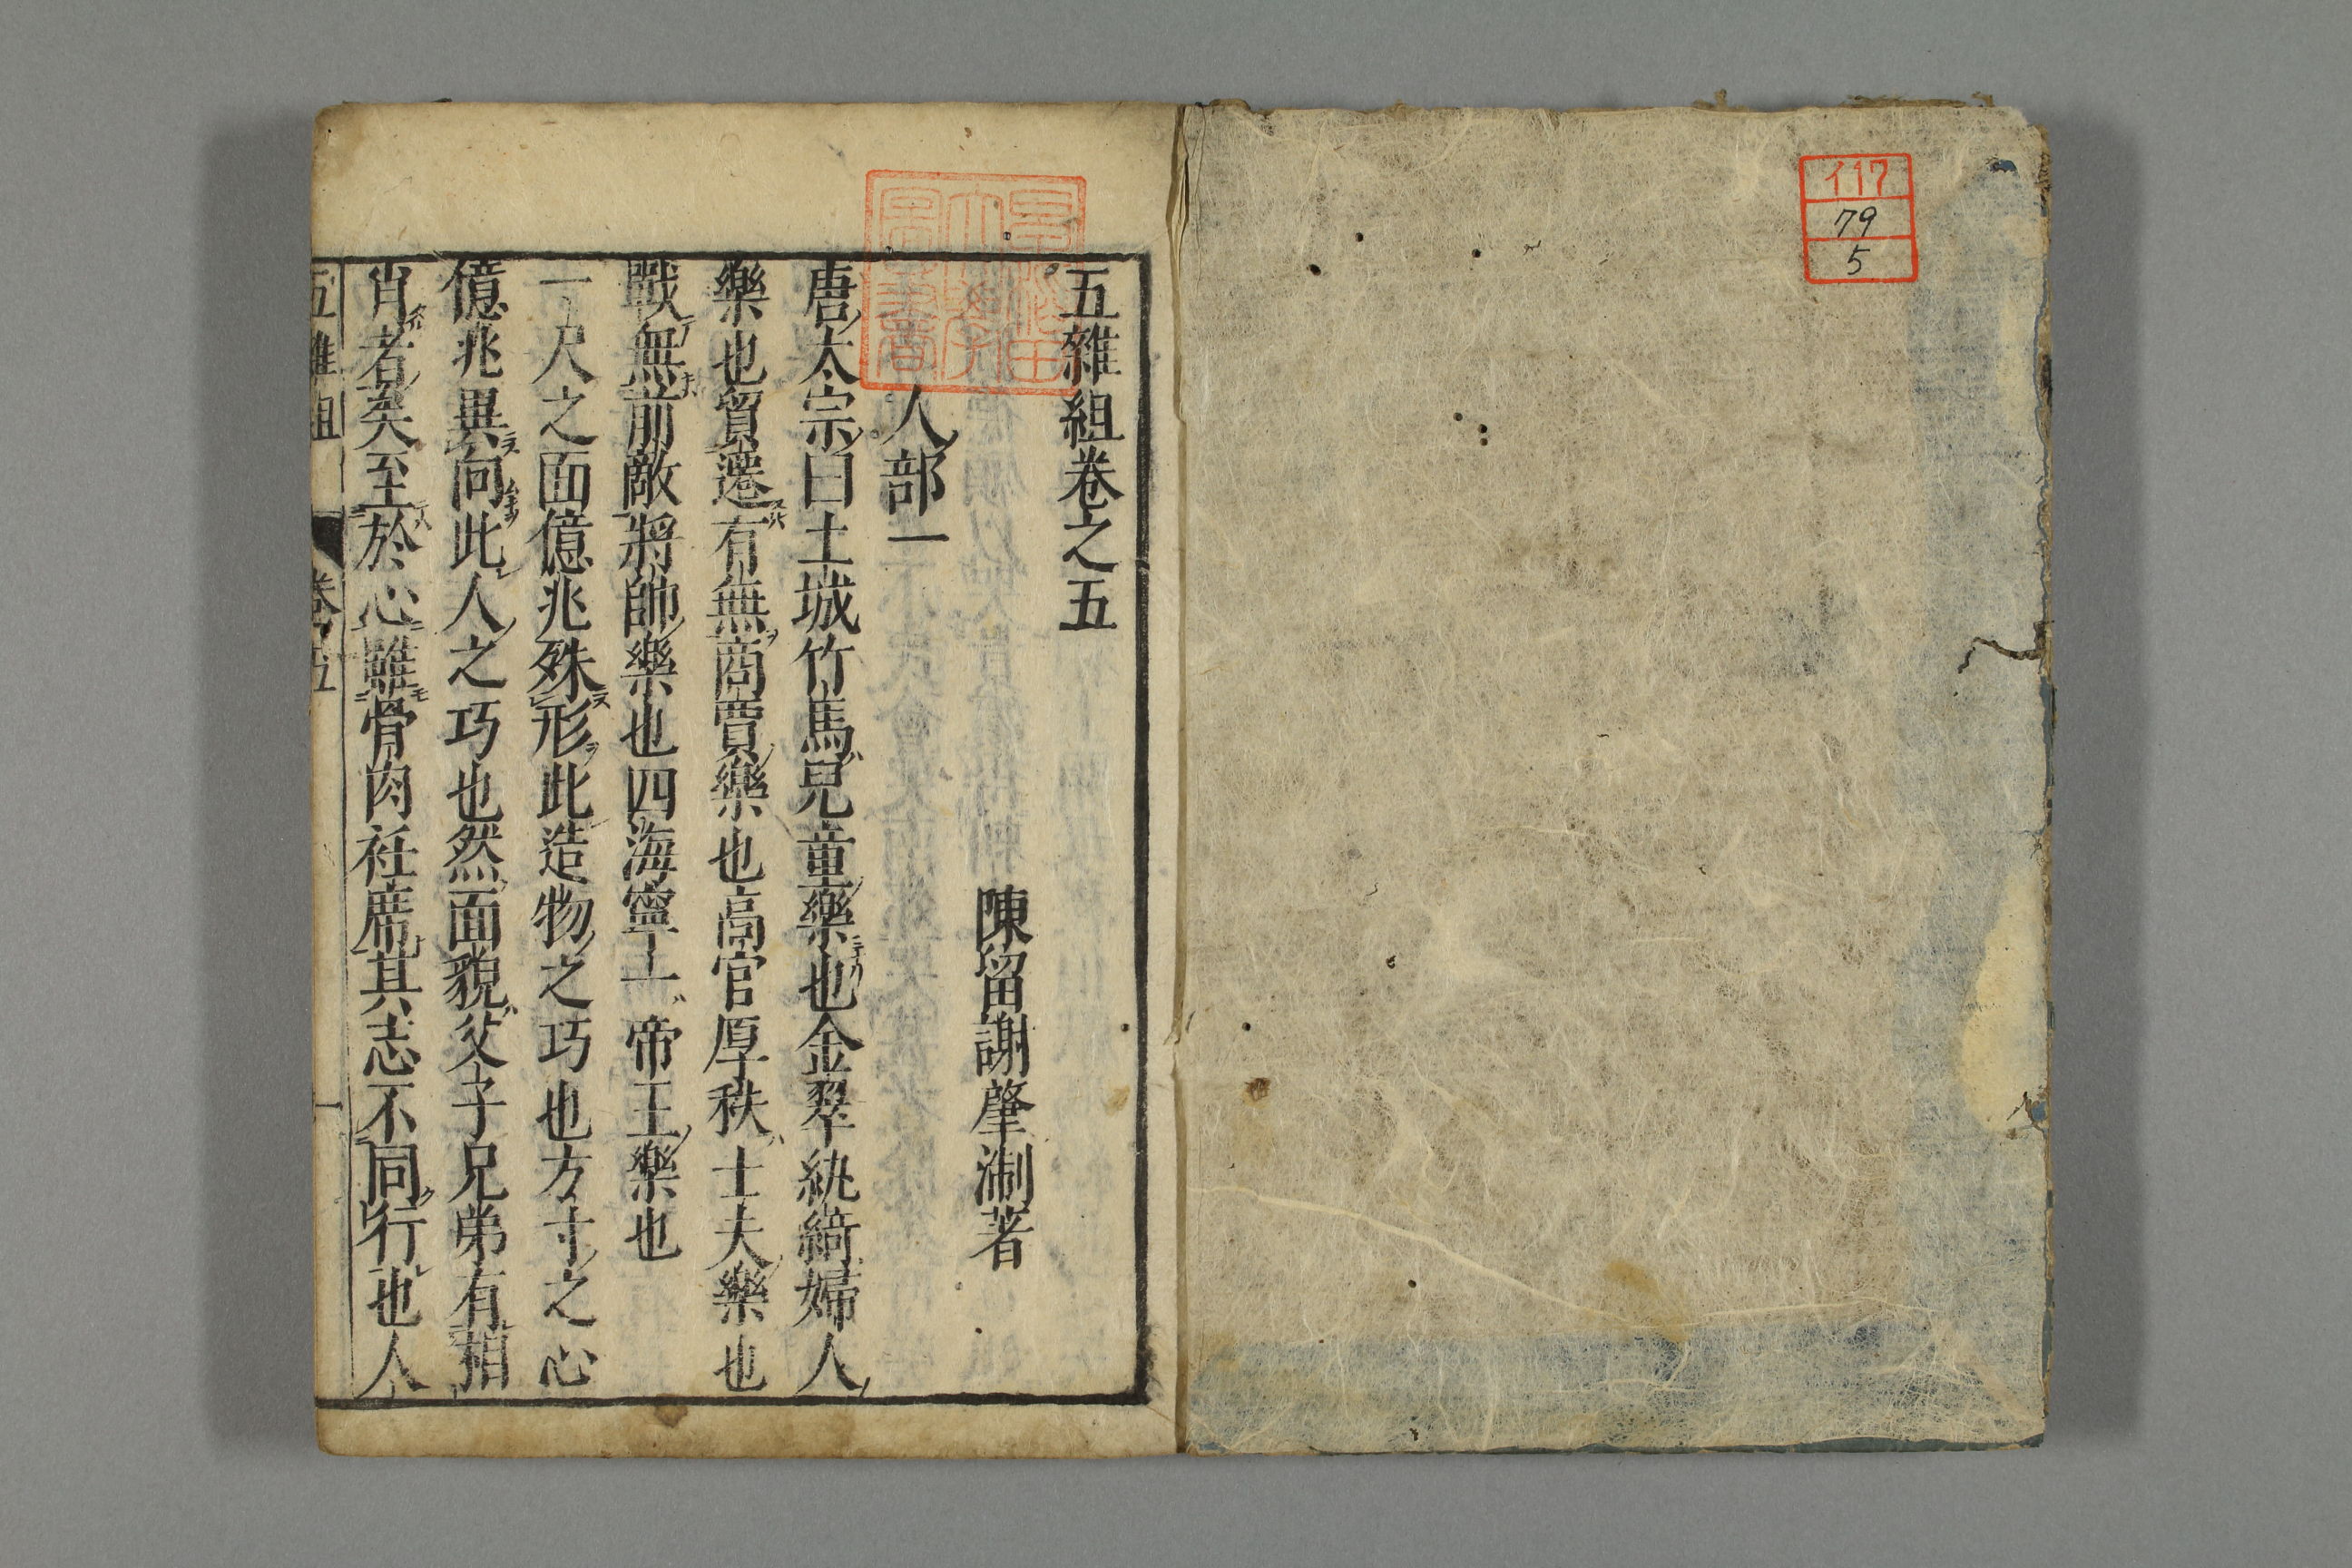 イ17
79
5
五雜組卷之五
陳留謝肇淛著
人部一
唐太宗曰土城竹馬兒童樂也金翠紈綺婦人
樂也貿遷有無商賈樂也高官厚秩士夫樂也
戰無前敵將帥樂也四海寧一帝王樂也
一尺之面億兆殊形此造物之巧也方寸之心
億兆異向此人之巧也然面貌父子兄弟有相
肖者矣至於心雖骨肉衽席其志不同行也人
五雜組
卷五
一
早稻田
大學
圖書